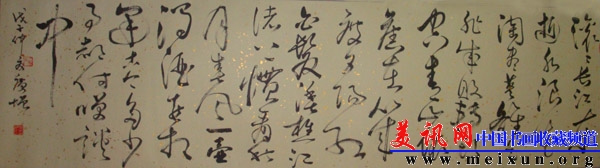 滚滚长江东
逝水浪
淘尽英雄是
非成败转头
空青山依
旧在几
度夕阳红
白发渔樵江
渚上惯看秋
月春风一壶
浊酒喜相
逢古今多少
事都付笑谈
中
戊子仲
美讯网
中国书画收藏频道
www.meixun.org